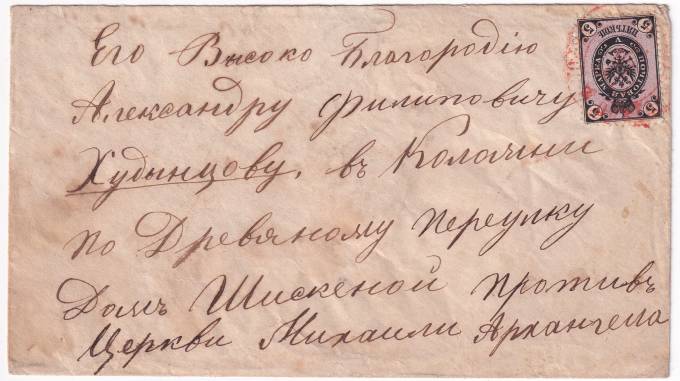 Его Высоко Благородію
Александру Филиповичу
Худынцову, въ Коломни
по Древяному переулку
Домъ Шискеной противъ
Церкви Михаили Архангела
5 ПЯТЬ КОП. 5
ПОЧТОВАЯ МАРКА
5 5